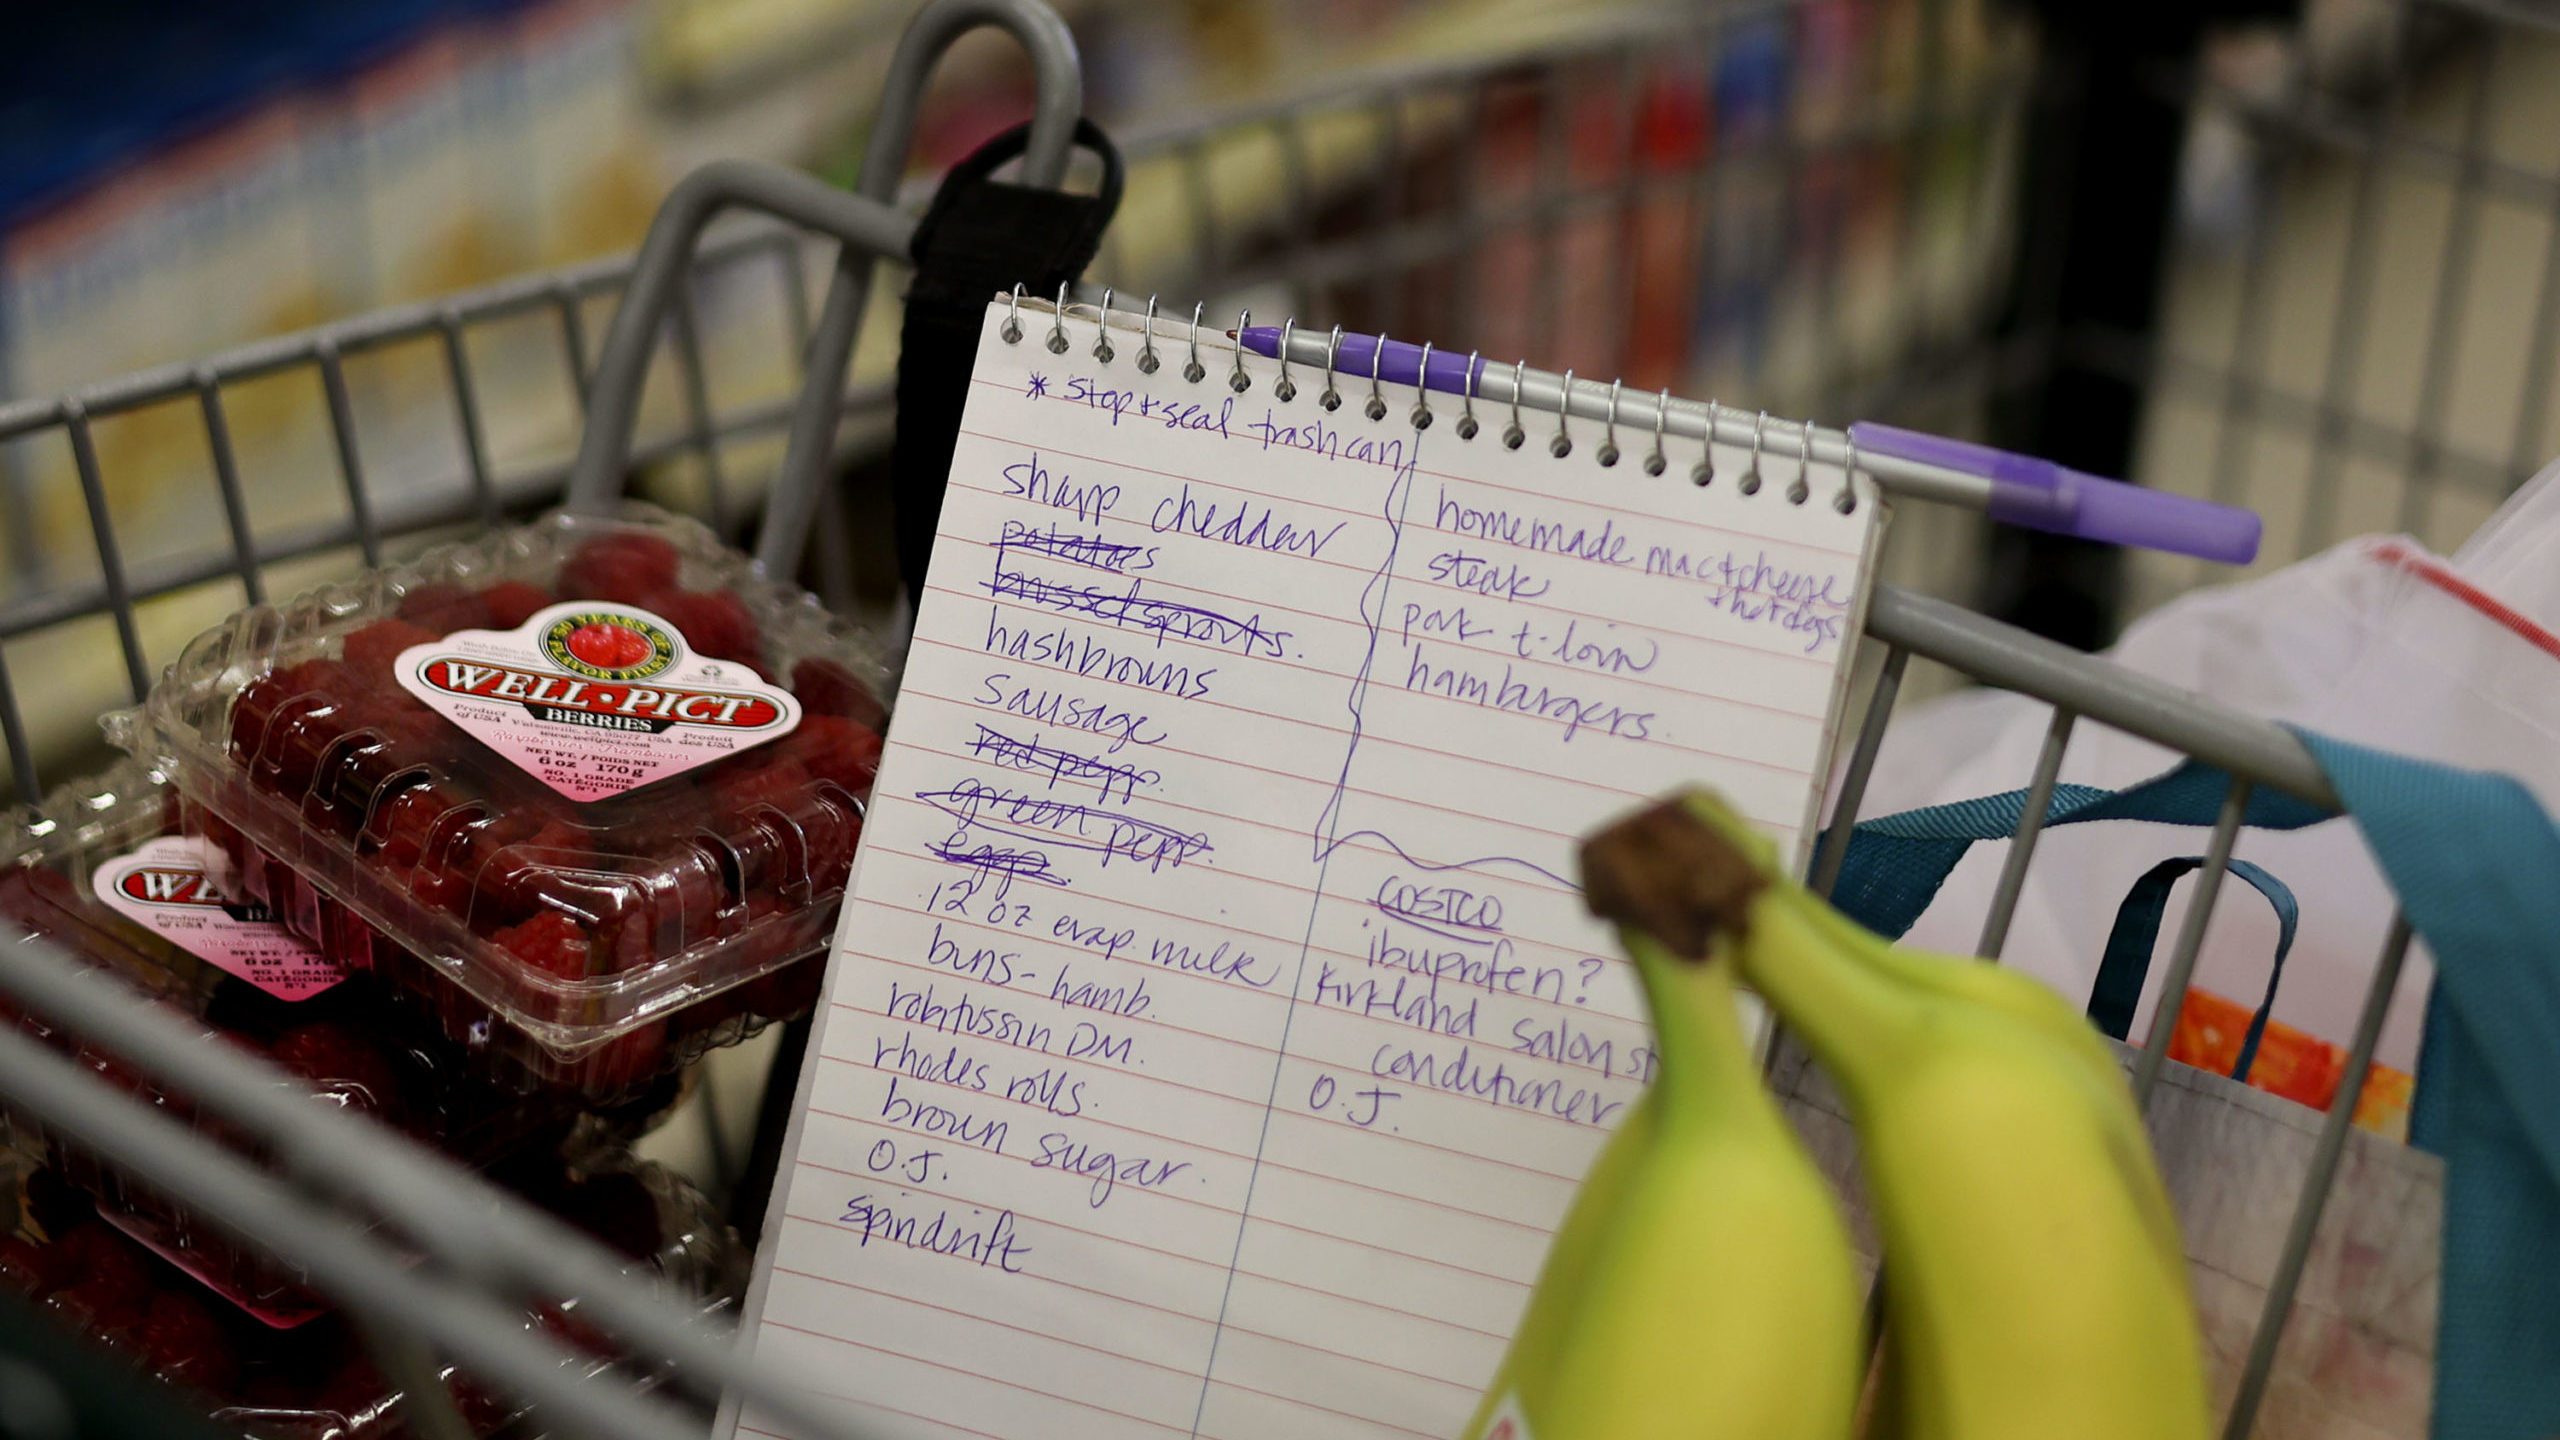 * Stop & seal trash can
sharp cheddar
potatoes
brussel sprouts.
hashbrowns
sausage
red pepp.
green pepp.
eggs.
12 oz evap. milk
buns - hamb.
robitussin DM.
rhodes rolls.
brown sugar.
O.J.
spindrift
homemade mac & cheese
+ hotdogs
steak
pork t-loin
hamburgers.
COSTCO
ibuprofen?
Kirkland Salon
conditioner
O.J.
50 YEARS OF
FLAVOR FIRST
WELL·PICT
BERRIES
Product of USA
Watsonville, CA 95077 USA
Produit des USA
www.wellpict.com
Raspberries · Framboises
NET WT. / POIDS NET
6 oz 170 g
NO. 1 GRADE
CATÉGORIE
Nº1
WE
Product of USA
6 oz 170
NO. 1 GRADE
CATÉGORIE
Nº1